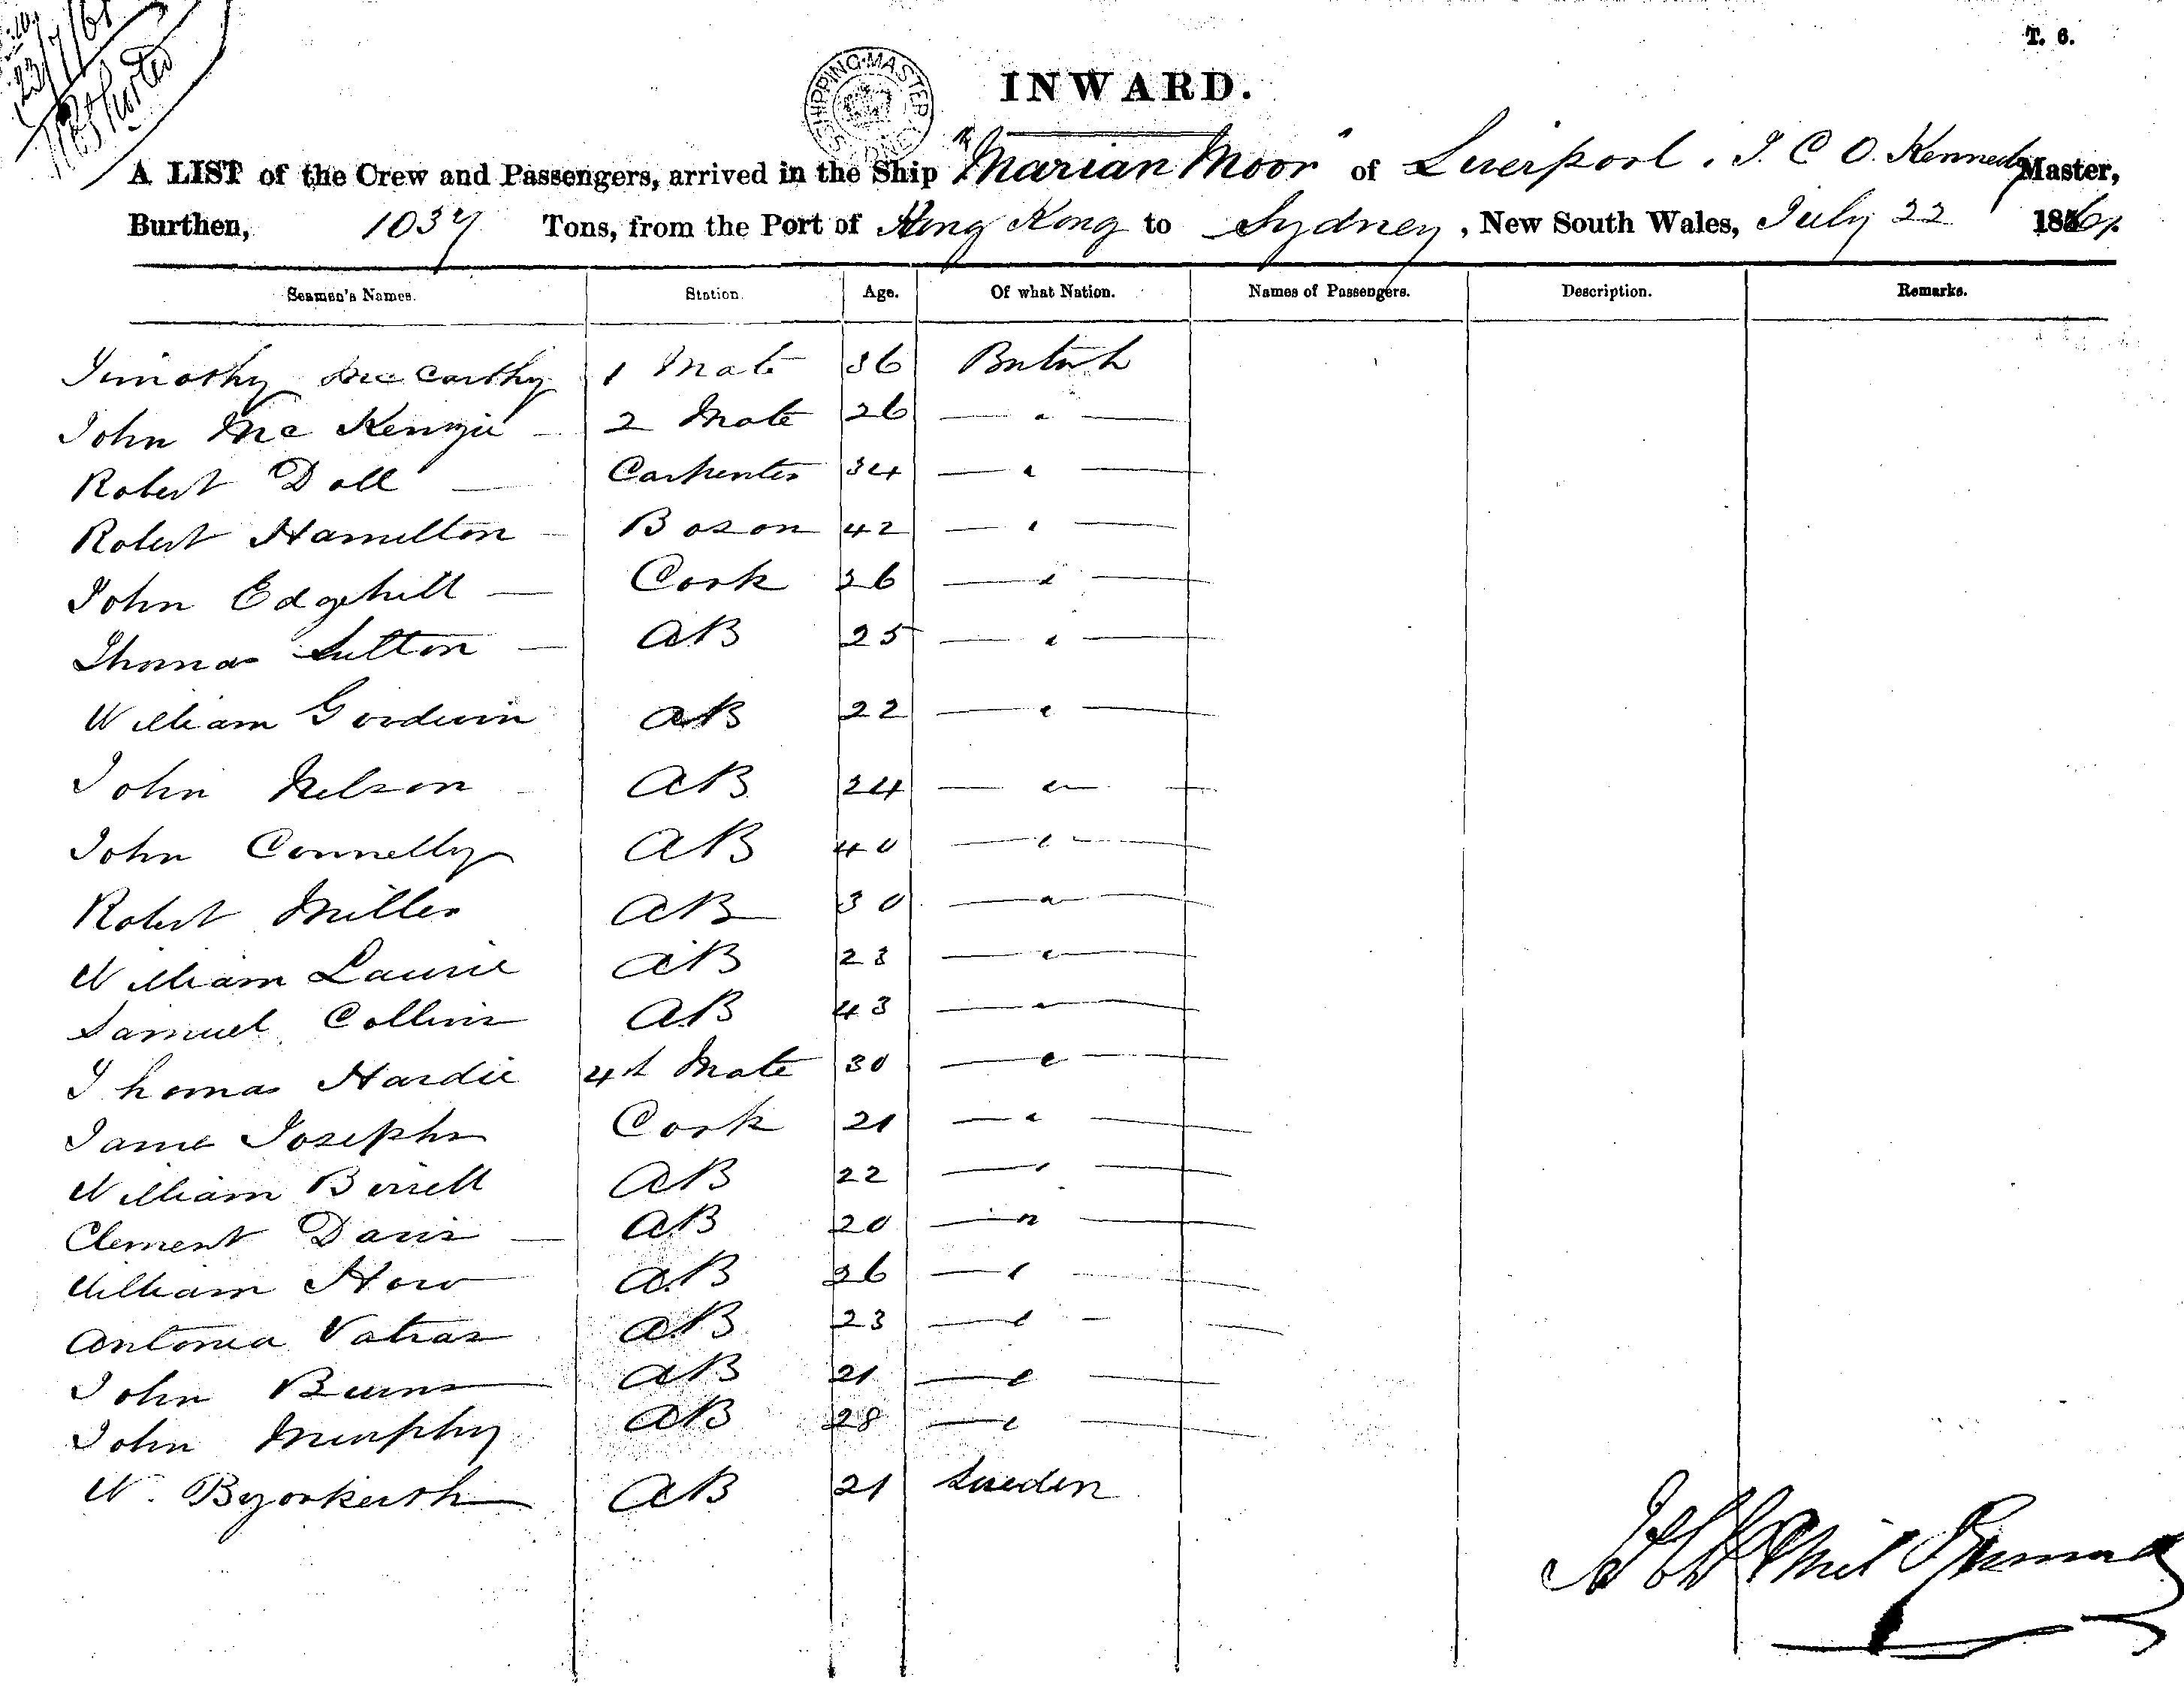 23/7/61
T. 6.
SHIPPING MASTER
INWARD.
A LIST of the Crew and Passengers, arrived in the Ship "Marian Moor" of Liverpool, J. C O. Kennedy Master,
Burthen, 1037 Tons, from the Port of Hong Kong to Sydney, New South Wales, July 22 1861.
Seamen's Names. Station. Age. Of what Nation. Names of Passengers. Description. Remarks.
Timothy McCarthy 1 Mate 36 British
John McKenzie — 2 Mate 26 — " —
Robert Doll — Carpenter 34 — " —
Robert Hamilton — Boson 42 — " —
John Edgehill — Cook 26 — " —
Thomas Sutton — AB 25 — " —
William Goodwin AB 22 — " —
John Nelson AB 24 — " —
John Connelly AB 40 — " —
Robert Miller AB 30 — " —
William Laurie AB 23 — " —
Samuel Collins AB 43 — " —
Thomas Hardie 4th Mate 30 — " —
Jame Josephs Cook 21 — " —
William Birrell AB 22 — " —
Clement Davis — AB 20 — " —
William How AB 26 — " —
Antonia Vatras AB 23 — " —
John Burns AB 21 — " —
John Murphy AB 28 — " —
W. Byorkerth AB 21 Sweden